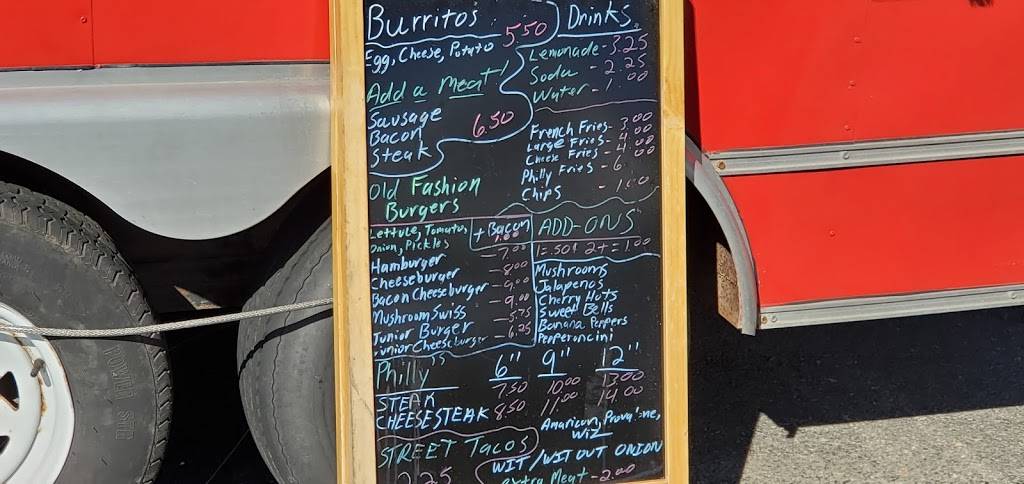 Burritos 5.50
Egg, Cheese, Potato
Add a meat!
Sausage
Bacon 6.50
Steak
Drinks
Lemonade - 3.25
Soda - 2.25
Water - 1.00
French Fries - 3.00
Large Fries - 4.00
Cheese Fries - 4.00
Philly Fries - 6.00
Chips - 1.00
Old Fashion
Burgers
Lettuce, Tomatos
Onion, Pickles
+ Bacon
1.00
Hamburger - 7.00
Cheeseburger - 8.00
Bacon Cheeseburger - 9.00
Mushroom Swiss - 9.00
Junior Burger - 5.75
Junior Cheeseburger - 6.25
ADD-ONS
1=.50¢ 2+=1.00
Mushrooms
Jalapenos
Cherry Hots
Sweet Bells
Banana Peppers
Pepperoncini
Philly's 6" 9" 12"
STEAK 7.50 10.00 13.00
CHEESESTEAK 8.50 11.00 14.00
American, Provalone,
Wiz
STREET Tacos
WIT/WITOUT ONION
extra Meat - 2.00